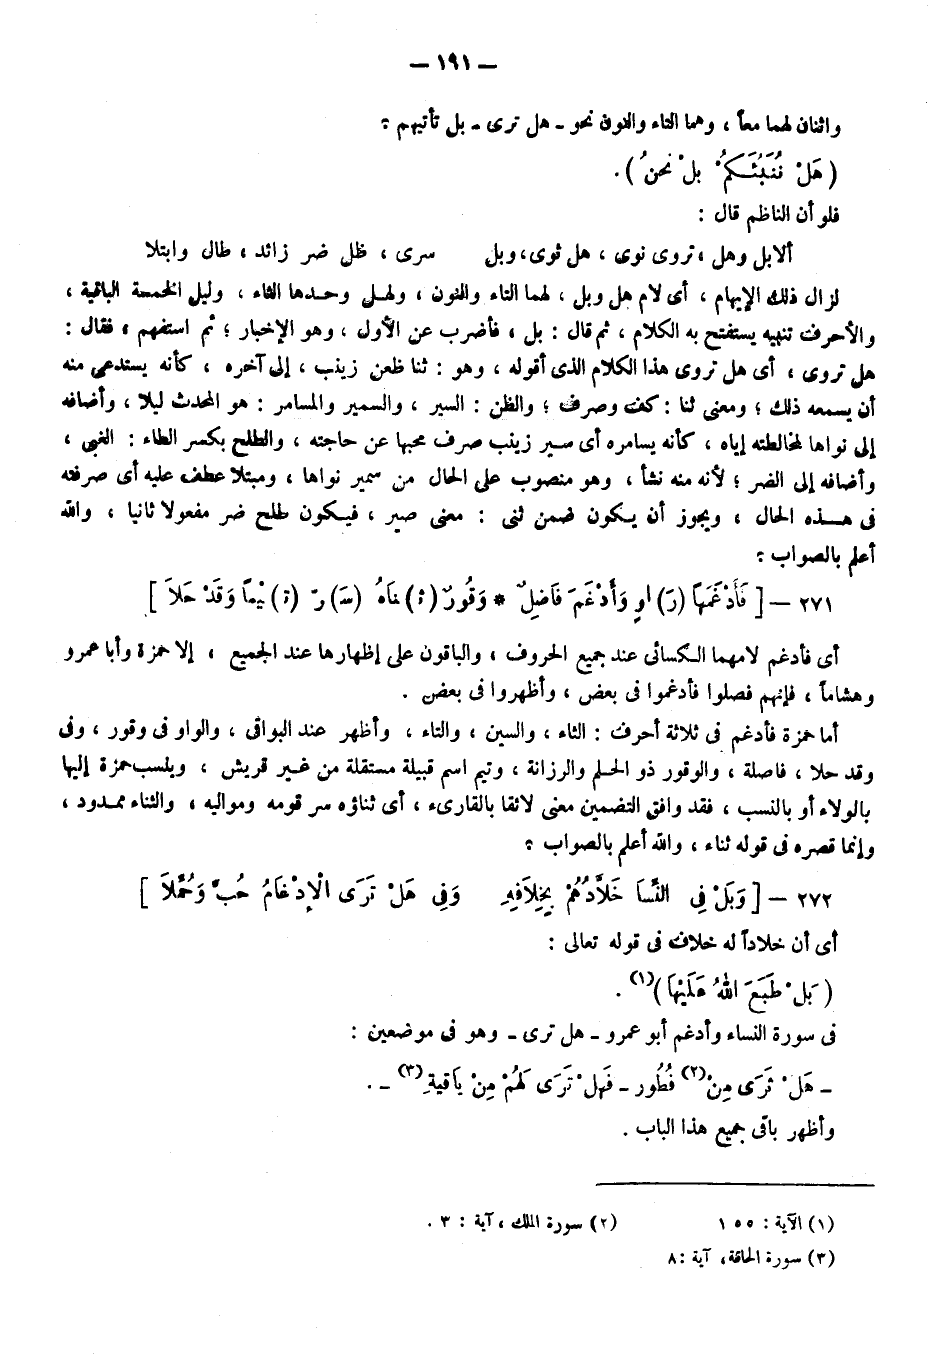 — ١٩١ —
واثنان لهما معاً ، وهما التاء والنون نحو ـ هل ترى ـ بل تأتيهم ؟
( هَلْ نُنَبِّئُكُمْ بلْ نحنُ ) .
فلو أن الناظم قال :
ألا بل وهل ، تروى نوى ، هل ثوى، وبل سرى ، ظل ضر زائد ، طال وابتلا
لزال ذلك الإيهام ، أى لام هل وبل ، لهما التاء والنون ، ولهل وحدها الثاء ، ولبل الخمسة الباقية ،
والأحرف تنبيه يستفتح به الكلام ، ثم قال : بل ، فأضرب عن الأول ، وهو الإخبار ؛ ثم استفهم ، فقال :
هل تروى ، أى هل تروى هذا الكلام الذى أقوله ، وهو : ثنا ظعن زينب ، إلى آخره ، كأنه يستدعى منه
أن يسمعه ذلك ؛ ومعنى ثنا : كف وصرف ؛ والظن : السير ، والسمير والمسامر : هو المحدث ليلا ، وأضافه
إلى نواها لمخالطته إياه ، كأنه يسامره أى سير زينب صرف محبها عن حاجته ، والطلح بكسر الطاء : الغبى ،
وأضافه إلى الضر ؛ لأنه منه نشأ ، وهو منصوب على الحال من سمير نواها ، ومبتلا عطف عليه أى صرفته
فى هذه الحال ، ويجوز أن يكون ضمن ثنى : معنى صير ، فيكون طلح ضر مفعولا ثانيا ، والله
أعلم بالصواب ؟
٢٧١ — [ فَأَدْغَمَهاَ (رَ) اوٍ وَأَدْغَمَ فَاضِلٌ * وَقُورٌ (ثَـ) ـنَاهُ (سَـ) ـرَّ (تَـ) ـيْماً وَقَدْ حَلاَ ]
أى فأدغم لامهما الكسائى عند جميع الحروف ، والباقون على إظهارها عند الجميع ، إلا حمزة وأبا عمرو
وهشاماً ، فإنهم فصلوا فأدغموا فى بعض ، وأظهروا فى بعض .
أما حمزة فأدغم فى ثلاثة أحرف : الثاء ، والسين ، والتاء ، وأظهر عند البواقى ، والواو فى وقور ، وفى
وقد حلا ، فاصلة ، والوقور ذو الحلم والرزانة ، وتيم اسم قبيلة مستقلة من غير قريش ، وينسب حمزة إليها
بالولاء أو بالنسب ، فقد وافق التضمين معنى لائقا بالقارىء ، أى ثناؤه سر قومه ومواليه ، والثناء ممدود ،
وإنما قصره فى قوله ثناء ، والله أعلم بالصواب ؟
٢٧٢ — [ وَبَلْ فِى النِّسَا خَلاَّدُهُمْ بِخِلاَفِهِ وَفِى هَلْ تَرَى الْإِدْغَامُ حُبَّ وَحُمِّلاَ ]
أى أن خلاداً له خلاف فى قوله تعالى :
( بَلْ طَبَعَ اللهُ عَلَيْهَا )(١) .
فى سورة النساء وأدغم أبو عمرو ـ هل ترى ـ وهو فى موضعين :
ـ هَلْ تَرَى مِنْ(٢) فُطُور ـ فَهلْ تَرَى لَهُمْ مِنْ بَاقيةِ(٣) ـ .
وأظهر باقى جميع هذا الباب .
(١) الآية : ١٥٥ (٢) سورة الملك ، آية : ٣ .
(٣) سورة الحاقة، آية :٨